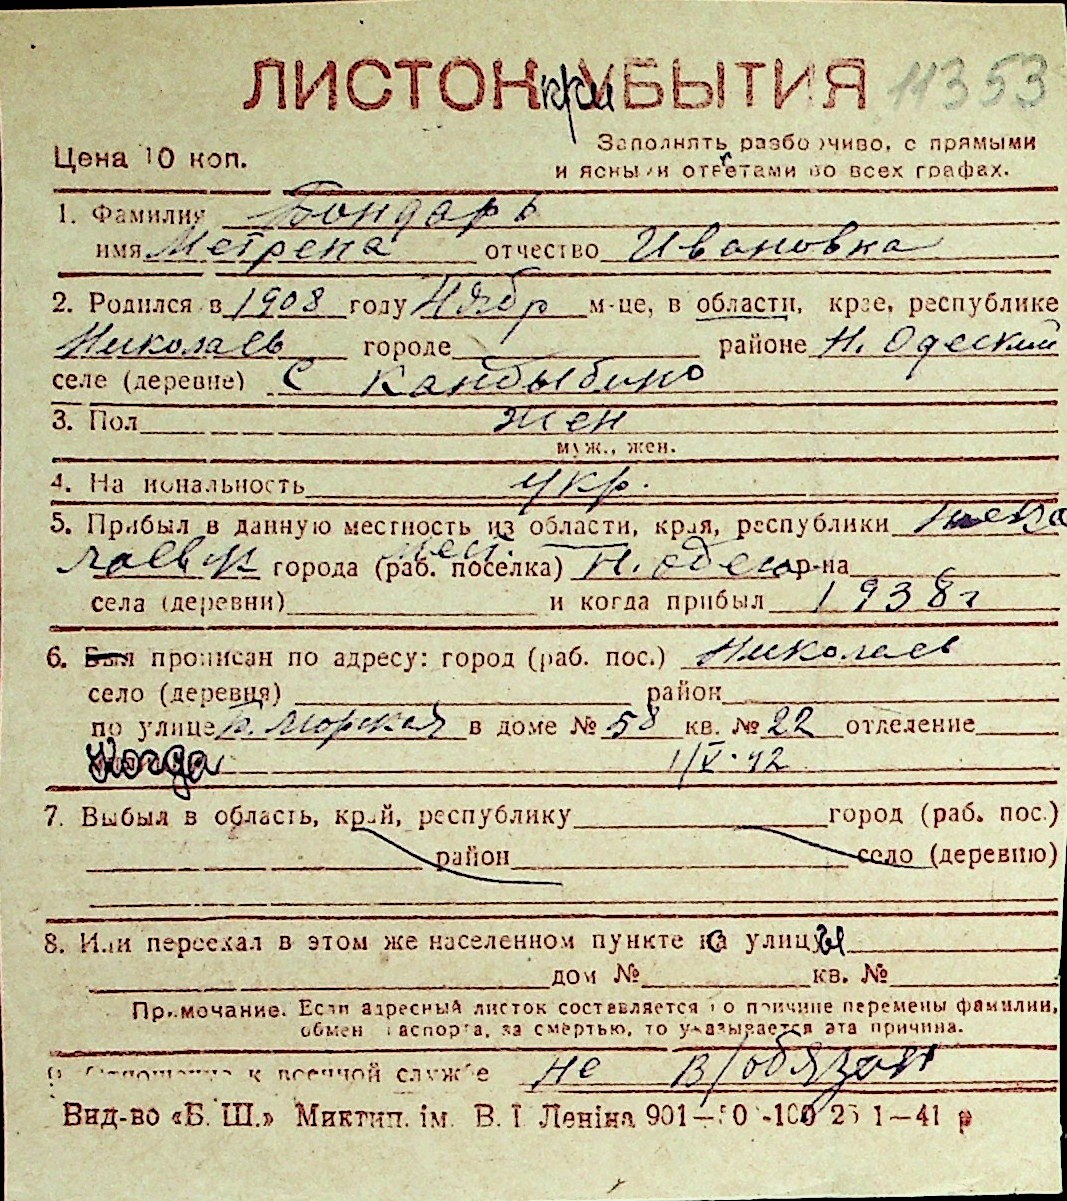 ЛИСТОК прибытия 11353
Цена 10 коп.
Заполнять разборчиво, с прямыми
и ясными ответами во всех графах.
1. Фамилия Бондарь
имя Метрена отчество Ивановна
2. Родился в 1908 году Ноябр м-це, в области, крае, республике
Николаев городе районе Н. Одеский
селе (деревне) с Кандыбино
3. Пол жен
муж., жен.
4. Национальность укр.
5. Прибыл в данную местность из области, края, республики
города (раб. поселка) Н. Одесс р-на
села (деревни) и когда прибыл 1938 г
6. Был прописан по адресу: город (раб. пос.) Николаев
село (деревня) район
по улице Б. Морская в доме № 58 кв. № 22 отделение
Когда 1/V-42
7. Выбыл в область, край, республику город (раб. пос.)
район село (деревню)
8. Или переехал в этом же населенном пункте с улицы
дом № кв. №
Примечание. Если адресный листок составляется по причине перемены фамилии,
обмен паспорта, за смертью, то указывается эта причина.
9. Отношение к военной службе не в/обязан
Вид-во «Б. Ш.» Миктип. ім. В. І Леніна 901—50 -100 25 1—41 р